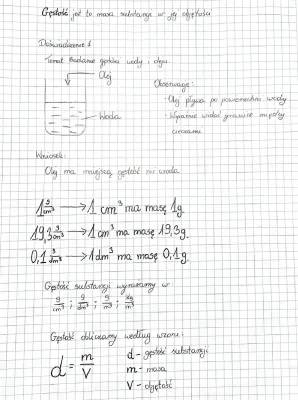 Gęstość jest to masa substancji w jej objętości
Doświadczenie 1
Temat: Badanie gęstości wody i oleju
Olej
Woda
Obserwacje:
- Olej pływa po powierzchni wody
- Wyraźnie widać granicę między
cieczami
Wniosek:
Olej ma mniejszą gęstość niż woda
1 g/cm³ → 1 cm³ ma masę 1g.
19,3 g/cm³ → 1 cm³ ma masę 19,3g.
0,1 g/dm³ → 1 dm³ ma masę 0,1g.
Gęstość substancji wyrażamy w
g/cm³ ; g/dm³ ; g/m³ ; kg/m³
Gęstość obliczamy według wzoru:
d = m/V
d - gęstość substancji
m - masa
V - objętość